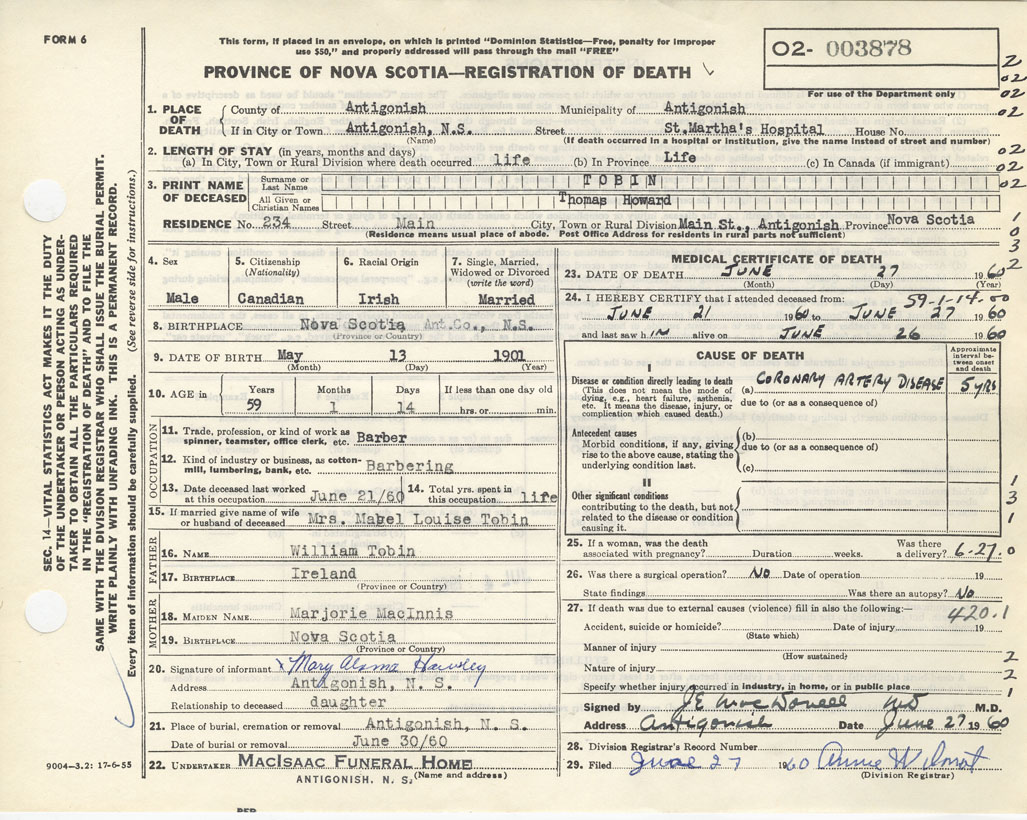 FORM 6
This form, if placed in an envelope, on which is printed "Dominion Statistics—Free, penalty for improper
use $50," and properly addressed will pass through the mail "FREE"
PROVINCE OF NOVA SCOTIA—REGISTRATION OF DEATH
02- 003878
For use of the Department only
1. PLACE OF DEATH { County of Antigonish Municipality of Antigonish
If in City or Town Antigonish, N.S. Street St.Martha's Hospital House No.
(Name) (If death occurred in a hospital or institution, give the name instead of street and number)
2. LENGTH OF STAY (in years, months and days)
(a) In City, Town or Rural Division where death occurred life (b) In Province Life (c) In Canada (if immigrant)
3. PRINT NAME OF DECEASED { Surname or Last Name TOBIN
All Given or Christian Names Thomas Howard
RESIDENCE No. 234 Street Main City, Town or Rural Division Main St., Antigonish Province Nova Scotia
(Residence means usual place of abode. Post Office Address for residents in rural parts not sufficient)
4. Sex 5. Citizenship (Nationality) 6. Racial Origin 7. Single, Married, Widowed or Divorced (write the word)
Male Canadian Irish Married
8. BIRTHPLACE Nova Scotia Ant.Co., N.S.
(Province or Country)
9. DATE OF BIRTH May 13 1901
(Month) (Day) (Year)
10. AGE in { Years Months Days If less than one day old
59 1 14 hrs. or min.
OCCUPATION
11. Trade, profession, or kind of work as
spinner, teamster, office clerk, etc. Barber
12. Kind of industry or business, as cotton-
mill, lumbering, bank, etc. Barbering
13. Date deceased last worked at this occupation June 21/60 14. Total yrs. spent in this occupation life
15. If married give name of wife
or husband of deceased Mrs. Mabel Louise Tobin
FATHER
16. NAME William Tobin
17. BIRTHPLACE Ireland
(Province or Country)
MOTHER
18. MAIDEN NAME Marjorie MacInnis
19. BIRTHPLACE Nova Scotia
(Province or Country)
20. Signature of informant x Mary Hawley
Address Antigonish, N. S.
Relationship to deceased daughter
21. Place of burial, cremation or removal Antigonish, N. S.
Date of burial or removal June 30/60
22. UNDERTAKER MACISAAC FUNERAL HOME
ANTIGONISH, N. S. (Name and address)
MEDICAL CERTIFICATE OF DEATH
23. DATE OF DEATH JUNE 27 1960
(Month) (Day) (Year)
59-1-14-00
24. I HEREBY CERTIFY that I attended deceased from:
JUNE 21 1960 to JUNE 27 1960
and last saw him alive on JUNE 26 1960
CAUSE OF DEATH
Approximate interval between onset and death
I
Disease or condition directly leading to death (a) CORONARY ARTERY DISEASE 5 yrs
(This does not mean the mode of
dying, e.g., heart failure, asthenia,
etc. It means the disease, injury, or
complication which caused death.)
due to (or as a consequence of)
Antecedent causes
Morbid conditions, if any, giving
rise to the above cause, stating the
underlying condition last.
(b)
due to (or as a consequence of)
(c)
II
Other significant conditions
contributing to the death, but not
related to the disease or condition
causing it.
25. If a woman, was the death
associated with pregnancy? Duration weeks. Was there a delivery?
6-27.0
26. Was there a surgical operation? No Date of operation 19
State findings Was there an autopsy? No
27. If death was due to external causes (violence) fill in also the following:—
420.1
Accident, suicide or homicide? Date of injury 19
(State which)
Manner of injury
(How sustained)
Nature of injury
Specify whether injury occurred in industry, in home, or in public place
Signed by JE MacDonell MD M.D.
Address Antigonish Date June 27 1960
28. Division Registrar's Record Number
29. Filed June 27 1960 Annie
(Division Registrar)
2
02
02
02
02
02
02
1
0
3
2
1
3
1
2
2
1
SEC. 14—VITAL STATISTICS ACT MAKES IT THE DUTY
OF THE UNDERTAKER OR PERSON ACTING AS UNDER-
TAKER TO OBTAIN ALL THE PARTICULARS REQUIRED
IN THE "REGISTRATION OF DEATH" AND TO FILE THE
SAME WITH THE DIVISION REGISTRAR WHO SHALL ISSUE THE BURIAL PERMIT.
WRITE PLAINLY WITH UNFADING INK. THIS IS A PERMANENT RECORD.
Every item of information should be carefully supplied. (See reverse side for instructions.)
9004—3.2: 17-6-55